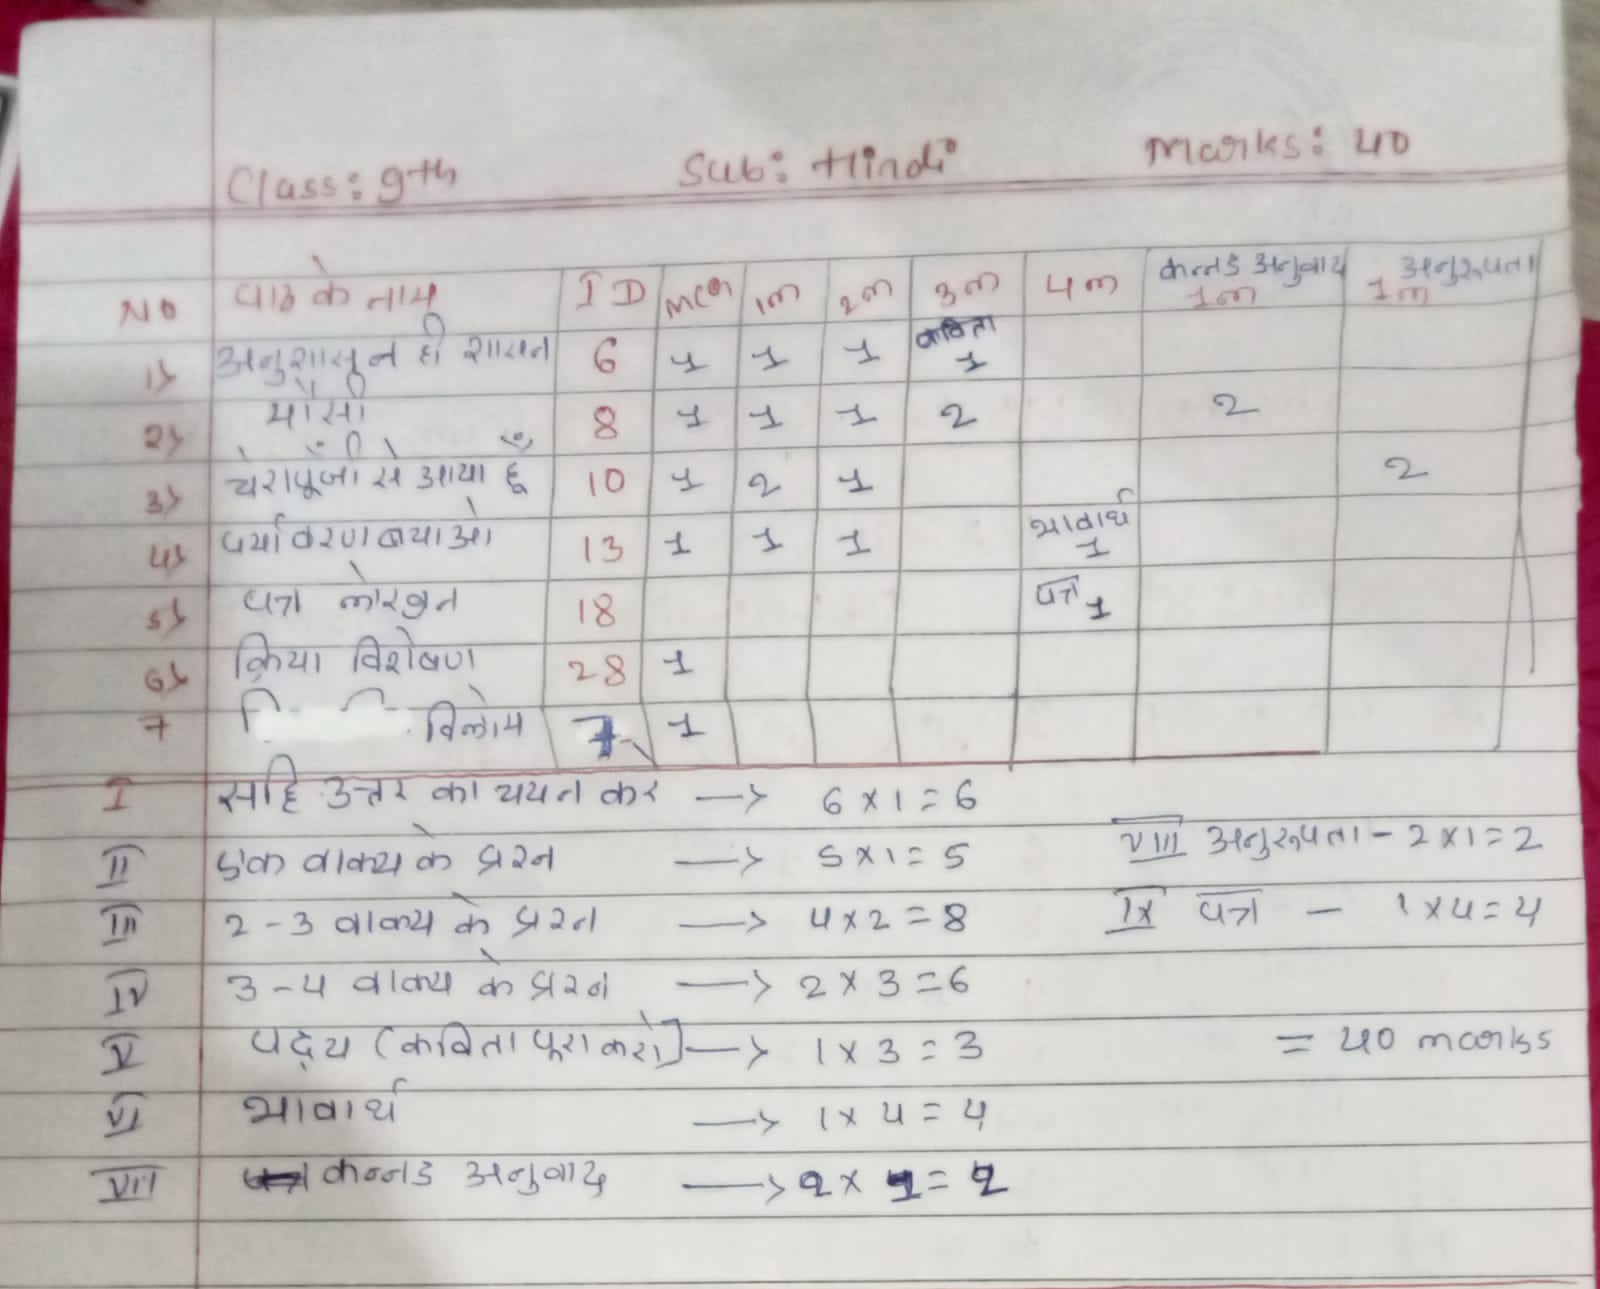 Class: 9th Sub: Hindi Marks: 40
NO पाठ के नाम ID MCQ 1m 2m 3m 4m कन्नड अनुवाद 1m अनुरूपता 1m
1) अनुशासन ही शासन 6 1 1 1 कविता 1
2) मौसी 8 1 1 1 2 2
3) चेरापूंजी से आया हूँ 10 1 2 1 2
4) पर्यावरण बचाओ 13 1 1 1 भावार्थ 1
5) पत्र लेखन 18 पत्र 1
6) क्रिया विशेषण 28 1
7 विलोम 7 1
I सहि उत्तर का चयन कर → 6 x 1 = 6
II एक वाक्य के प्रश्न → 5 x 1 = 5 VIII अनुरूपता - 2 x 1 = 2
III 2-3 वाक्य के प्रश्न → 4 x 2 = 8 IX पत्र - 1 x 4 = 4
IV 3-4 वाक्य के प्रश्न → 2 x 3 = 6
V पद्य (कविता पूरा करो] → 1 x 3 = 3 = 40 marks
VI भावार्थ → 1 x 4 = 4
VII कन्नड अनुवाद → 2 x 1 = 2